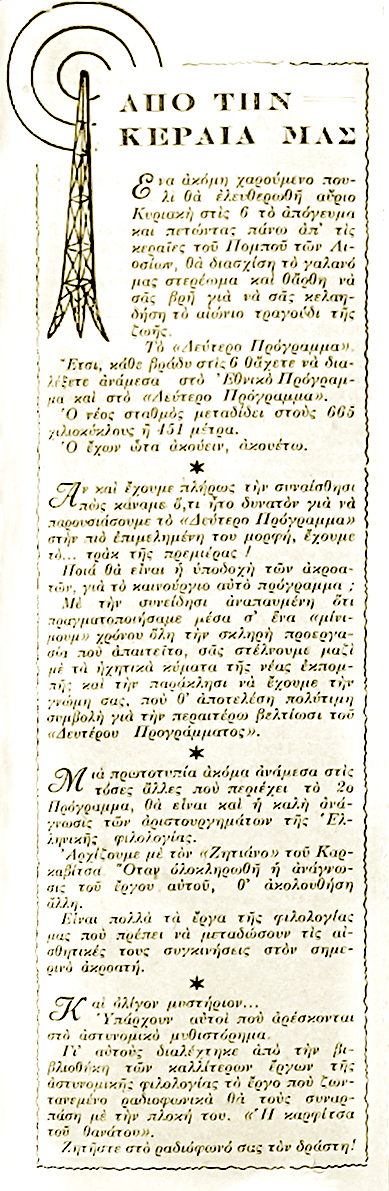 ΑΠΟ ΤΗΝ
ΚΕΡΑΙΑ ΜΑΣ
Ἕνα ἀκόμη χαρούμενο που-
λὶ θὰ ἐλευθερωθῆ αὔριο
Κυριακὴ στὶς 6 τὸ ἀπόγευμα
καὶ πετώντας πάνω ἀπ' τὶς
κεραῖες τοῦ Πομποῦ τῶν Λι-
οσίων, θὰ διασχίση τὸ γαλανὸ
μας στερέωμα καὶ θἄρθη νὰ
σᾶς βρῆ γιὰ νὰ σᾶς κελαη-
δήση τὸ αἰώνιο τραγούδι τῆς
ζωῆς.
Τὸ «Δεύτερο Πρόγραμμα».
Ἔτσι, κάθε βράδυ στὶς 6 θἄχετε νὰ δια-
λέξετε ἀνάμεσα στὸ Ἐθνικὸ Πρόγραμ-
μα καὶ στὸ «Δεύτερο Πρόγραμμα».
Ὁ νέος σταθμὸς μεταδίδει στοὺς 665
χιλιοκύκλους ἢ 451 μέτρα.
Ὁ ἔχων ὦτα ἀκούειν, ἀκουέτω.
*
Ἂν καὶ ἔχουμε πλήρως τὴν συναίσθησι
πὼς κάναμε ὅ,τι ἦτο δυνατὸν γιὰ νὰ
παρουσιάσουμε τὸ «Δεύτερο Πρόγραμμα»
στὴν πιὸ ἐπιμελημένη του μορφή, ἔχουμε
τὸ... τρὰκ τῆς πρεμιέρας !
Ποιά θὰ εἶναι ἡ ὑποδοχὴ τῶν ἀκροα-
τῶν, γιὰ τὸ καινούργιο αὐτὸ πρόγραμμα ;
Μὲ τὴν συνείδησι ἀναπαυμένη ὅτι
πραγματοποιήσαμε μέσα σ' ἕνα «μίνι-
μουμ» χρόνου ὅλη τὴν σκληρὴ προεργα-
σία ποὺ ἀπαιτεῖτο, σᾶς στέλνουμε μαζὶ
μὲ τὰ ἠχητικὰ κύματα τῆς νέας ἐκπομ-
πῆς καὶ τὴν παράκλησι νὰ ἔχουμε τὴν
γνώμη σας, ποὺ θ' ἀποτελέση πολύτιμη
συμβολὴ γιὰ τὴν περαιτέρω βελτίωσι τοῦ
«Δευτέρου Προγράμματος».
*
Μιὰ πρωτοτυπία ἀκόμα ἀνάμεσα στὶς
τόσες ἄλλες ποὺ περιέχει τὸ 2ο
Πρόγραμμα, θὰ εἶναι καὶ ἡ καλὴ ἀνά-
γνωσις τῶν ἀριστουργημάτων τῆς Ἑλ-
ληνικῆς φιλολογίας.
Ἀρχίζουμε μὲ τὸν «Ζητιάνο» τοῦ Καρ-
καβίτσα. Ὅταν ὁλοκληρωθῆ ἡ ἀνάγνω-
σις τοῦ ἔργου αὐτοῦ, θ' ἀκολουθήση
ἄλλη.
Εἶναι πολλὰ τὰ ἔργα τῆς φιλολογίας
μας ποὺ πρέπει νὰ μεταδώσουν τὶς αἰ-
σθητικές τους συγκινήσεις στὸν σημε-
ρινὸ ἀκροατή.
*
Καὶ ὀλίγον μυστήριον...
Ὑπάρχουν αὐτοὶ ποὺ ἀρέσκονται
στὸ ἀστυνομικὸ μυθιστόρημα.
Γι' αὐτοὺς διαλέχτηκε ἀπὸ τὴν βι-
βλιοθήκη τῶν καλλίτερων ἔργων τῆς
ἀστυνομικῆς φιλολογίας τὸ ἔργο ποὺ ζων-
τανεμένο ραδιοφωνικὰ θὰ τοὺς συναρ-
πάση μὲ τὴν πλοκή του. «Ἡ καρφίτσα
τοῦ θανάτου».
Ζητῆστε στὸ ραδιόφωνό σας τὸν δράστη!